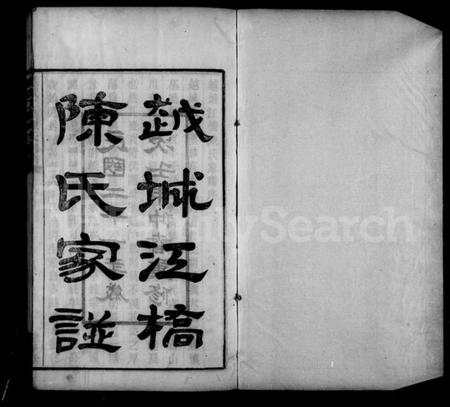 越城江橋
陳氏家譜
FamilySearch